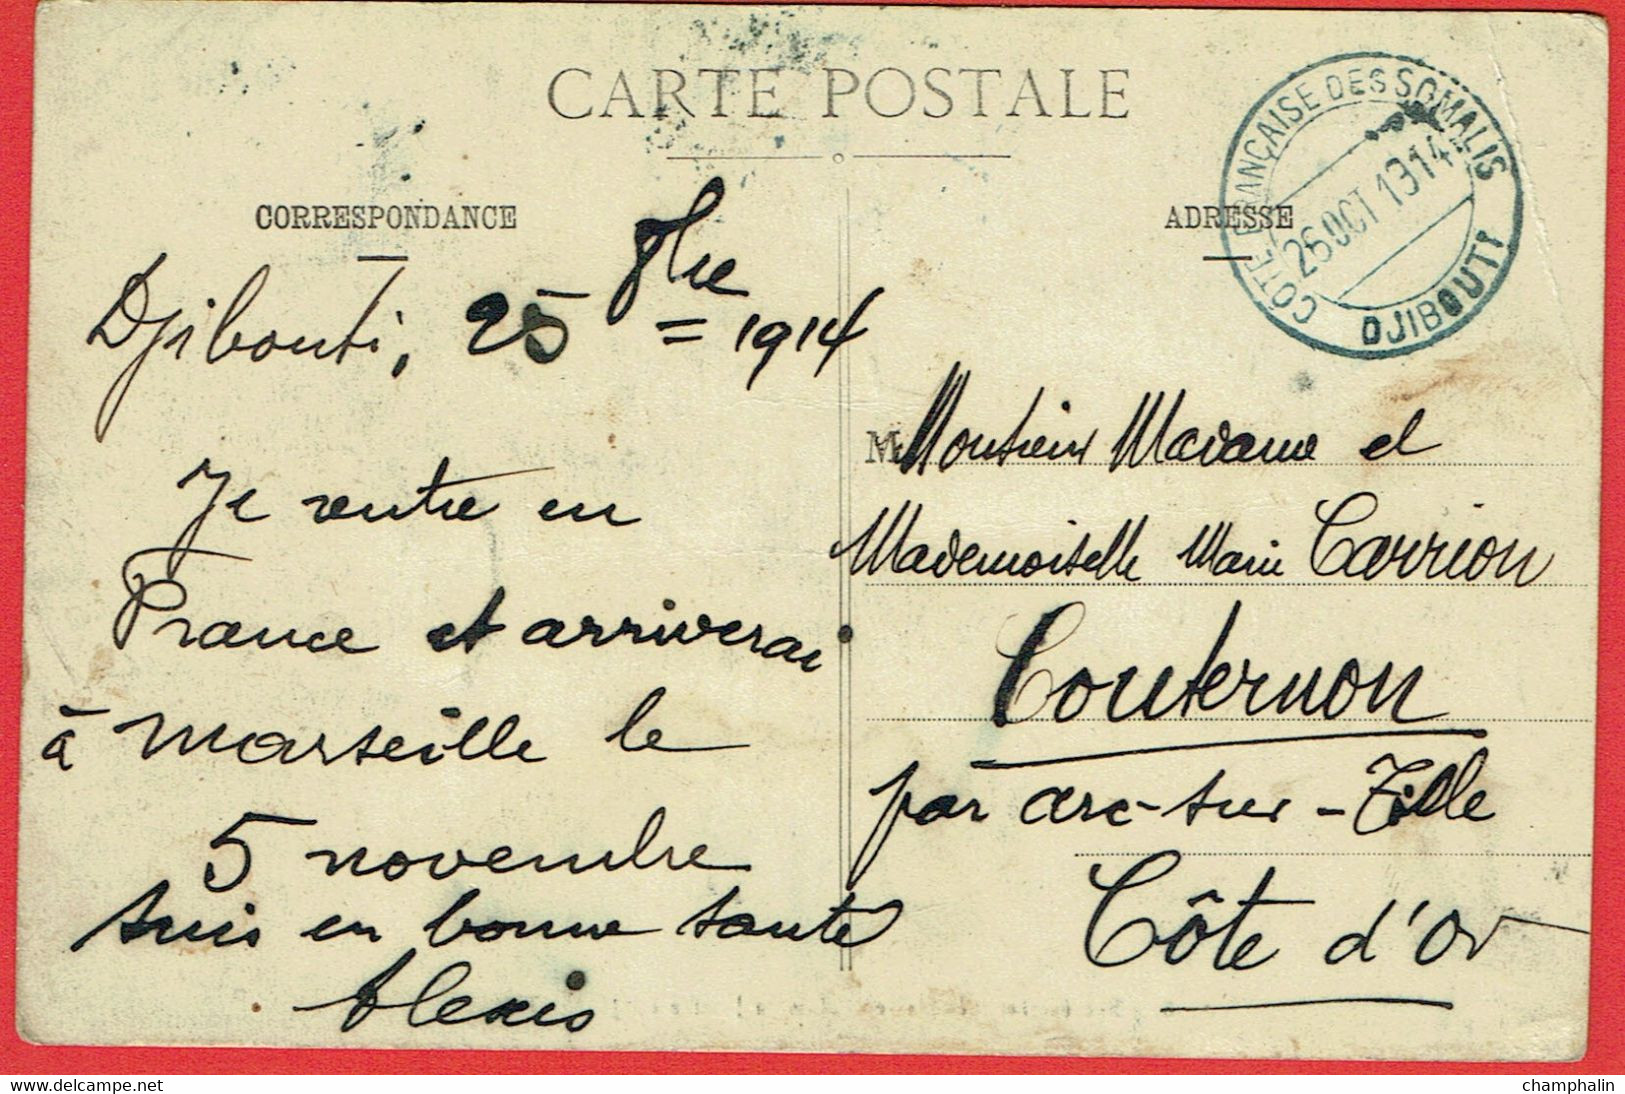 CARTE POSTALE
CORRESPONDANCE
ADRESSE
CÔTE FRANÇAISE DES SOMALIS
26 OCT 13 14
DJIBOUTI
Djibouti, 25 8bre = 1914
Je rentre en
France et arriverai
à Marseille le
5 novembre
suis en bonne santé
Alexis
M
Monsieur Madame et
Mademoiselle Marie Carrion
Couternon
par Arc-sur-Tille
Côte d'Or
champhalin